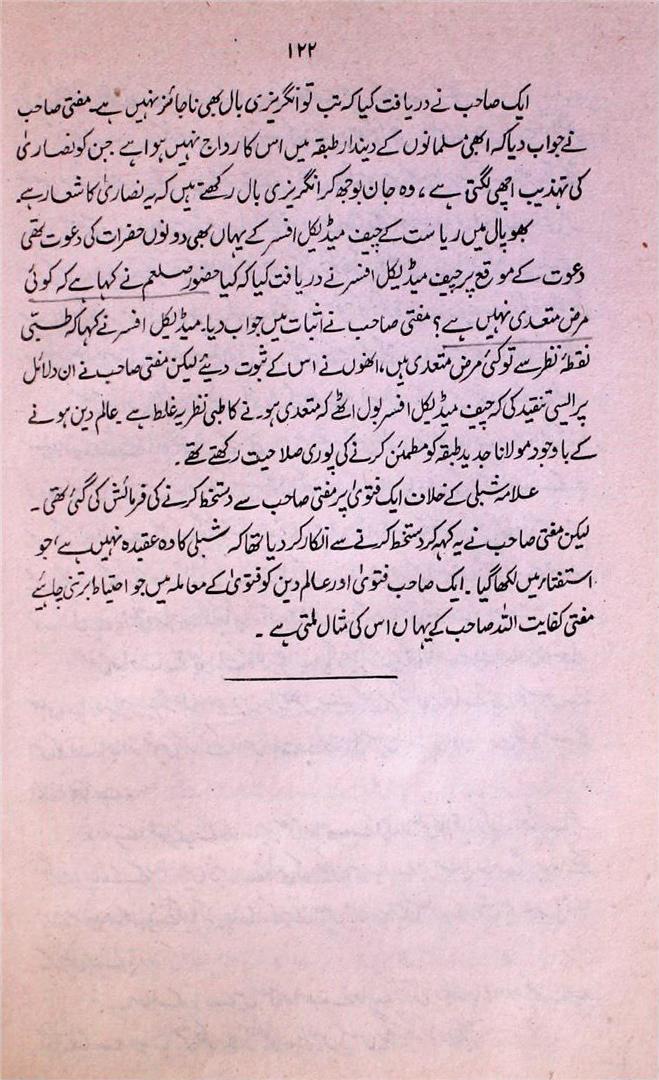 ۱۲۲
ایک صاحب نے دریافت کیا کہ تب تو انگریزی بال بھی ناجائز نہیں ہے۔ مفتی صاحب
نے جواب دیا کہ ابھی مسلمانوں کے دیندار طبقہ میں اس کا رواج نہیں ہوا ہے جن کو نصاریٰ
کی تہذیب اچھی لگتی ہے، وہ جان بوجھ کر انگریزی بال رکھتے ہیں کہ یہ نصاریٰ کا شعار ہے۔
بھوپال میں ریاست کے چیف میڈیکل افسر کے یہاں بھی دونوں حضرات کی دعوت تھی
دعوت کے موقع پر چیف میڈیکل افسر نے دریافت کیا کہ کیا حضور صلعم نے کہا ہے کہ کوئی
مرض متعدی نہیں ہے؟ مفتی صاحب نے اثبات میں جواب دیا۔ میڈیکل افسر نے کہا کہ طبّی
نقطۂ نظر سے تو کئی مرض متعدی ہیں، انھوں نے اس کے ثبوت دیئے لیکن مفتی صاحب نے ان دلائل
پر ایسی تنقید کی کہ چیف میڈیکل افسر بول اٹھے کہ متعدی ہونے کا طبی نظریہ غلط ہے۔ عالم دین ہونے
کے باوجود مولانا جدید طبقہ کو مطمئن کرنے کی پوری صلاحیت رکھتے تھے۔
علامہ شبلی کے خلاف ایک فتویٰ پر مفتی صاحب سے دستخط کرنے کی فرمائش کی گئی تھی۔
لیکن مفتی صاحب نے یہ کہہ کر دستخط کرنے سے انکار کر دیا تھا کہ شبلی کا وہ عقیدہ نہیں ہے، جو
استفتار میں لکھا گیا۔ ایک صاحب فتویٰ اور عالم دین کو فتویٰ کے معاملہ میں جو احتیاط برتنی چاہیے
مفتی کفایت اللہ صاحب کے یہاں اس کی مثال ملتی ہے۔